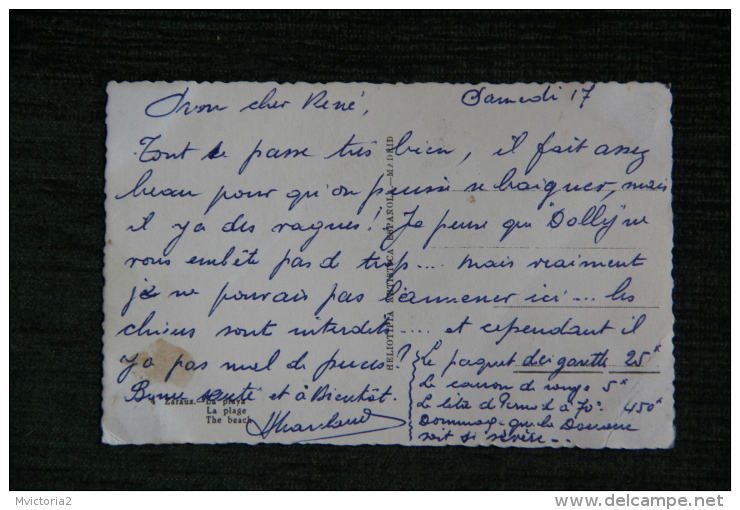 Mon cher René,
Samedi 17
Tout se passe très bien, il fait assez
beau pour qu'on puisse se baigner, mais
il y a des vagues! Je pense que "Dolly" ne
vous embête pas de trop.... mais vraiment
je ne pouvais pas l'ammener ici... les
chiens sont interdits.... et cependant il
y a pas mal de puces?
Bonne santé et à Bientôt.
Le paquet de cigarette 25
Le canon de rouge 5
Le litre de Pernod à 70° 450
Dommage que la Douane
soit si sévère...
Zarauz. La playa
La plage
The beach
HELIOTIPIA ARTISTICA ESPAÑOLA - MADRID
Mvictoria2
delcampe.net